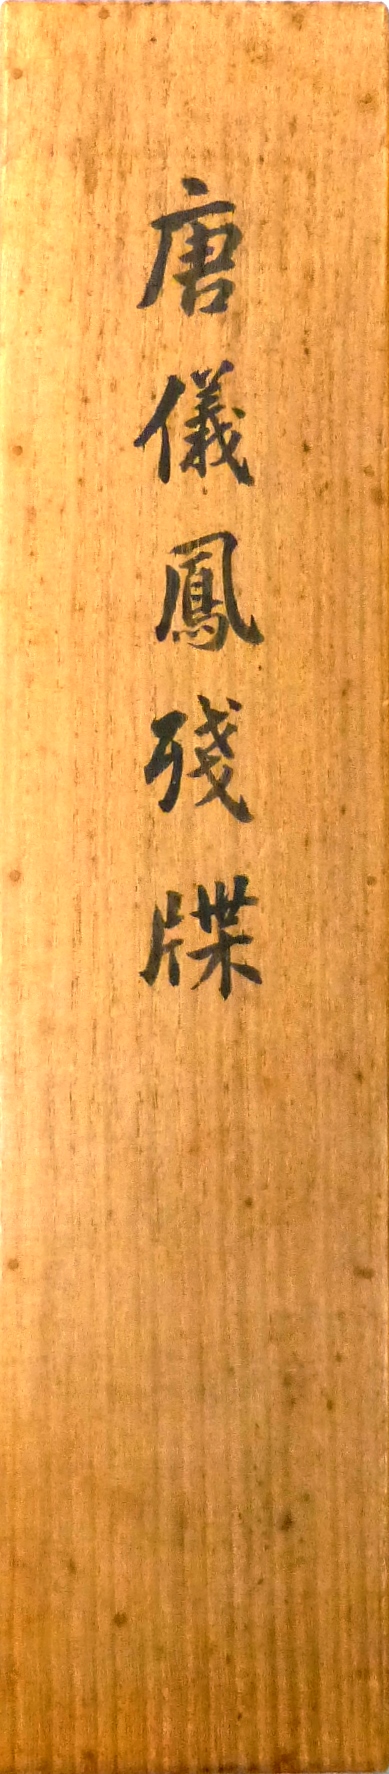 唐儀鳳殘牒